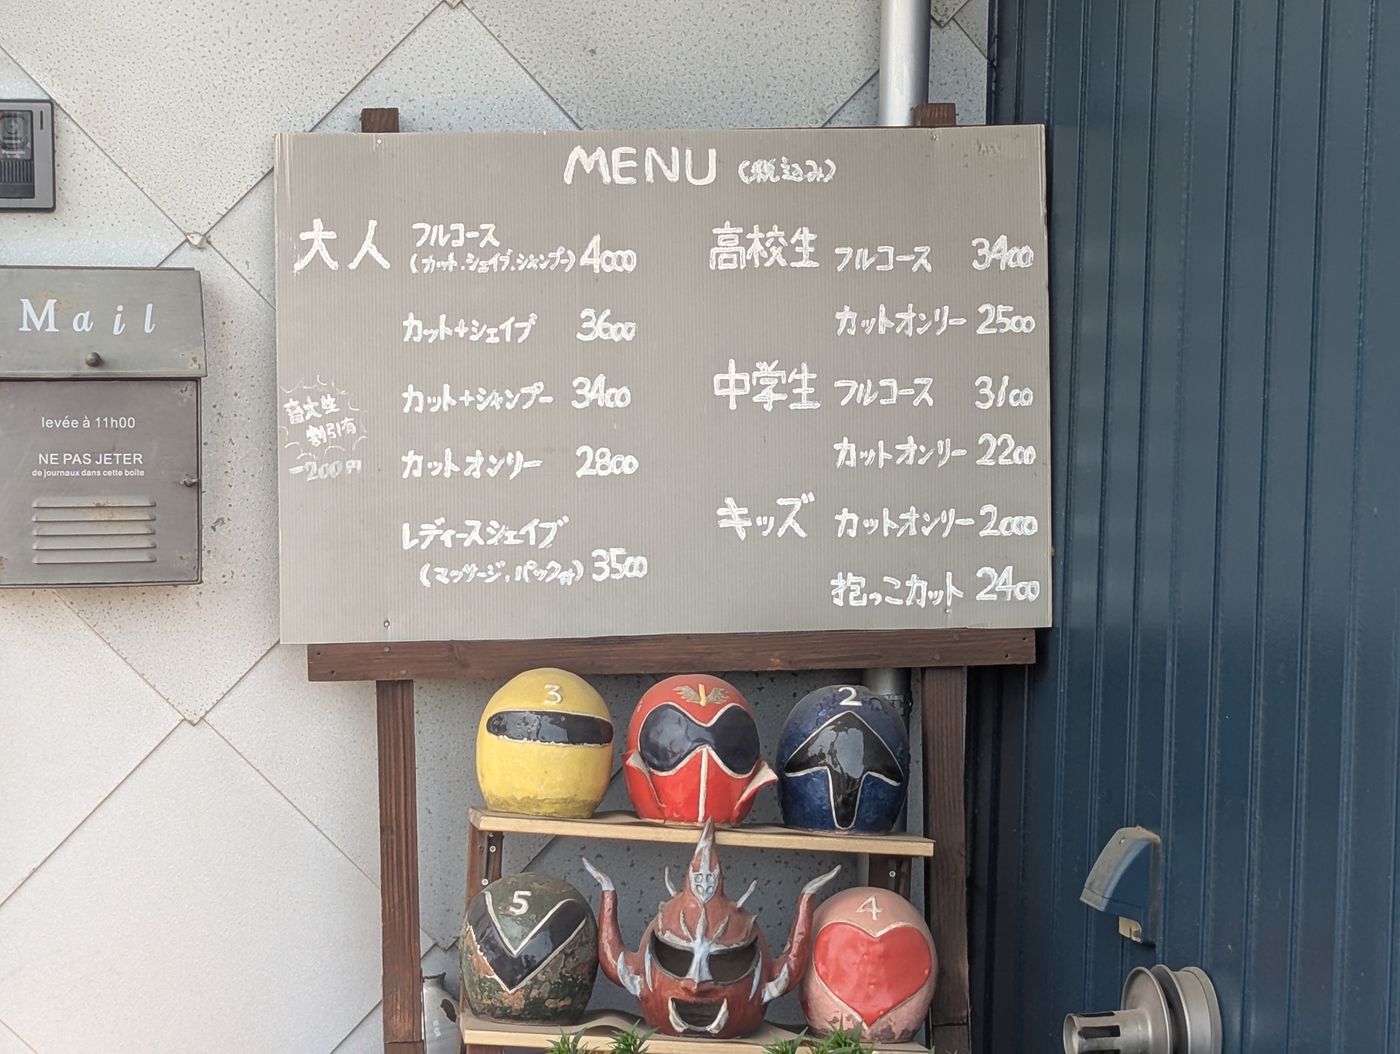 MENU (税込み)
大人 フルコース
(カット.シェイブ.シャンプー) 4000
カット+シェイブ 3600
カット+シャンプー 3400
カットオンリー 2800
レディースシェイブ
(マッサージ.パック付) 3500
割引有
-200円
高校生 フルコース 3400
カットオンリー 2500
中学生 フルコース 3100
カットオンリー 2200
キッズ カットオンリー 2000
抱っこカット 2400
Mail
levée à 11h00
NE PAS JETER
de journaux dans cette boîte
3
2
5
4